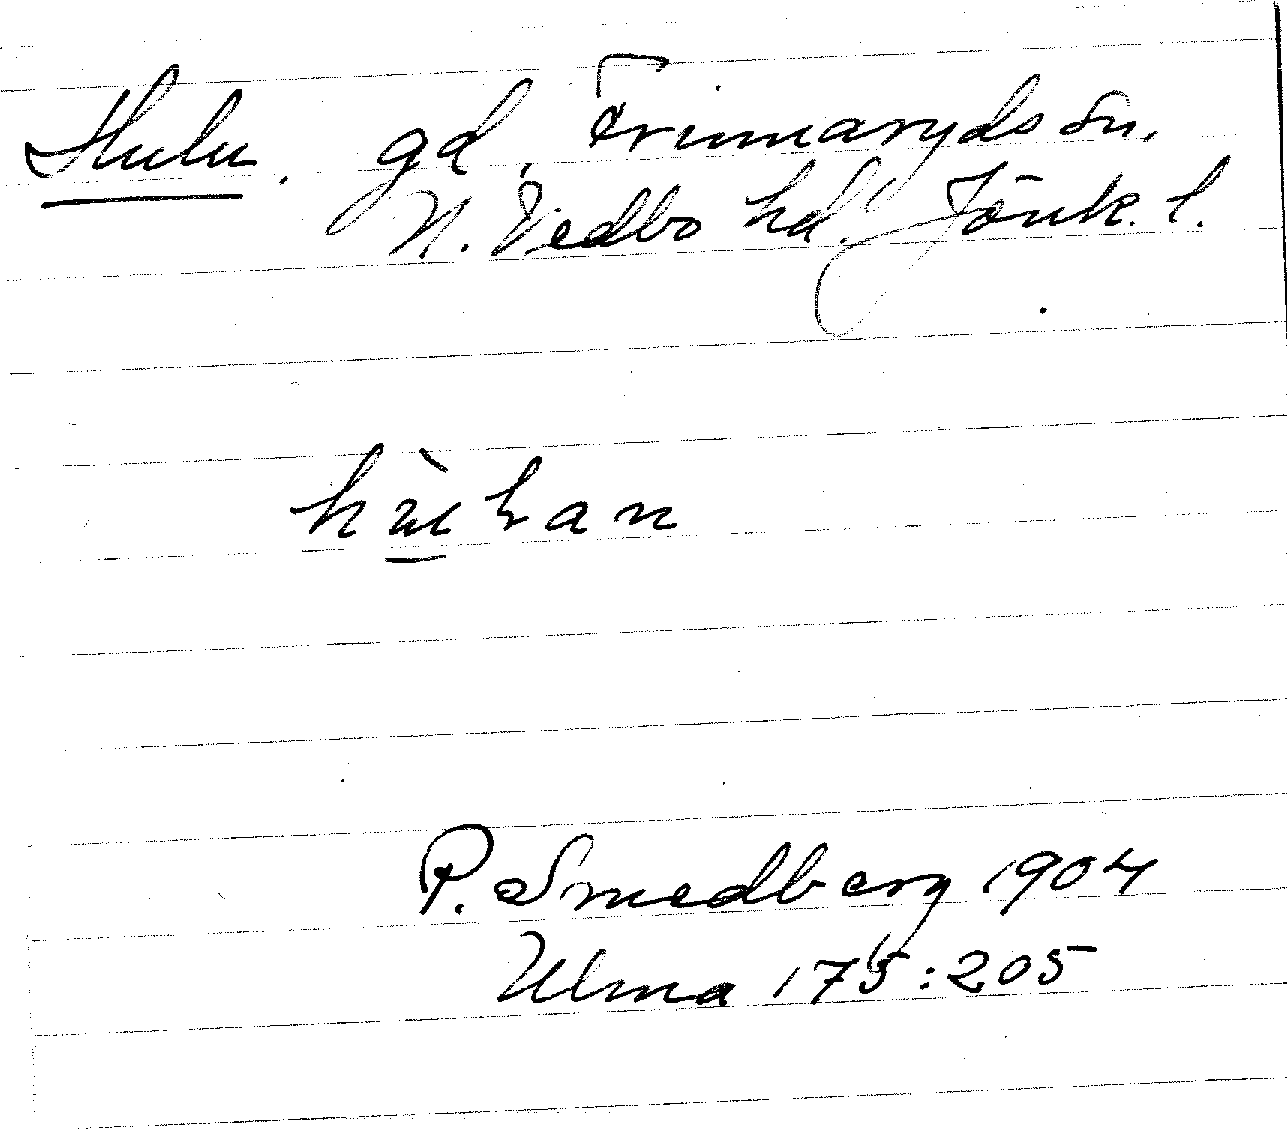 Hulu. gd, Frinnaryds sn,
N. Vedbo hd. Jönk. l.
P. Smedberg 1904
Ulma 175:205